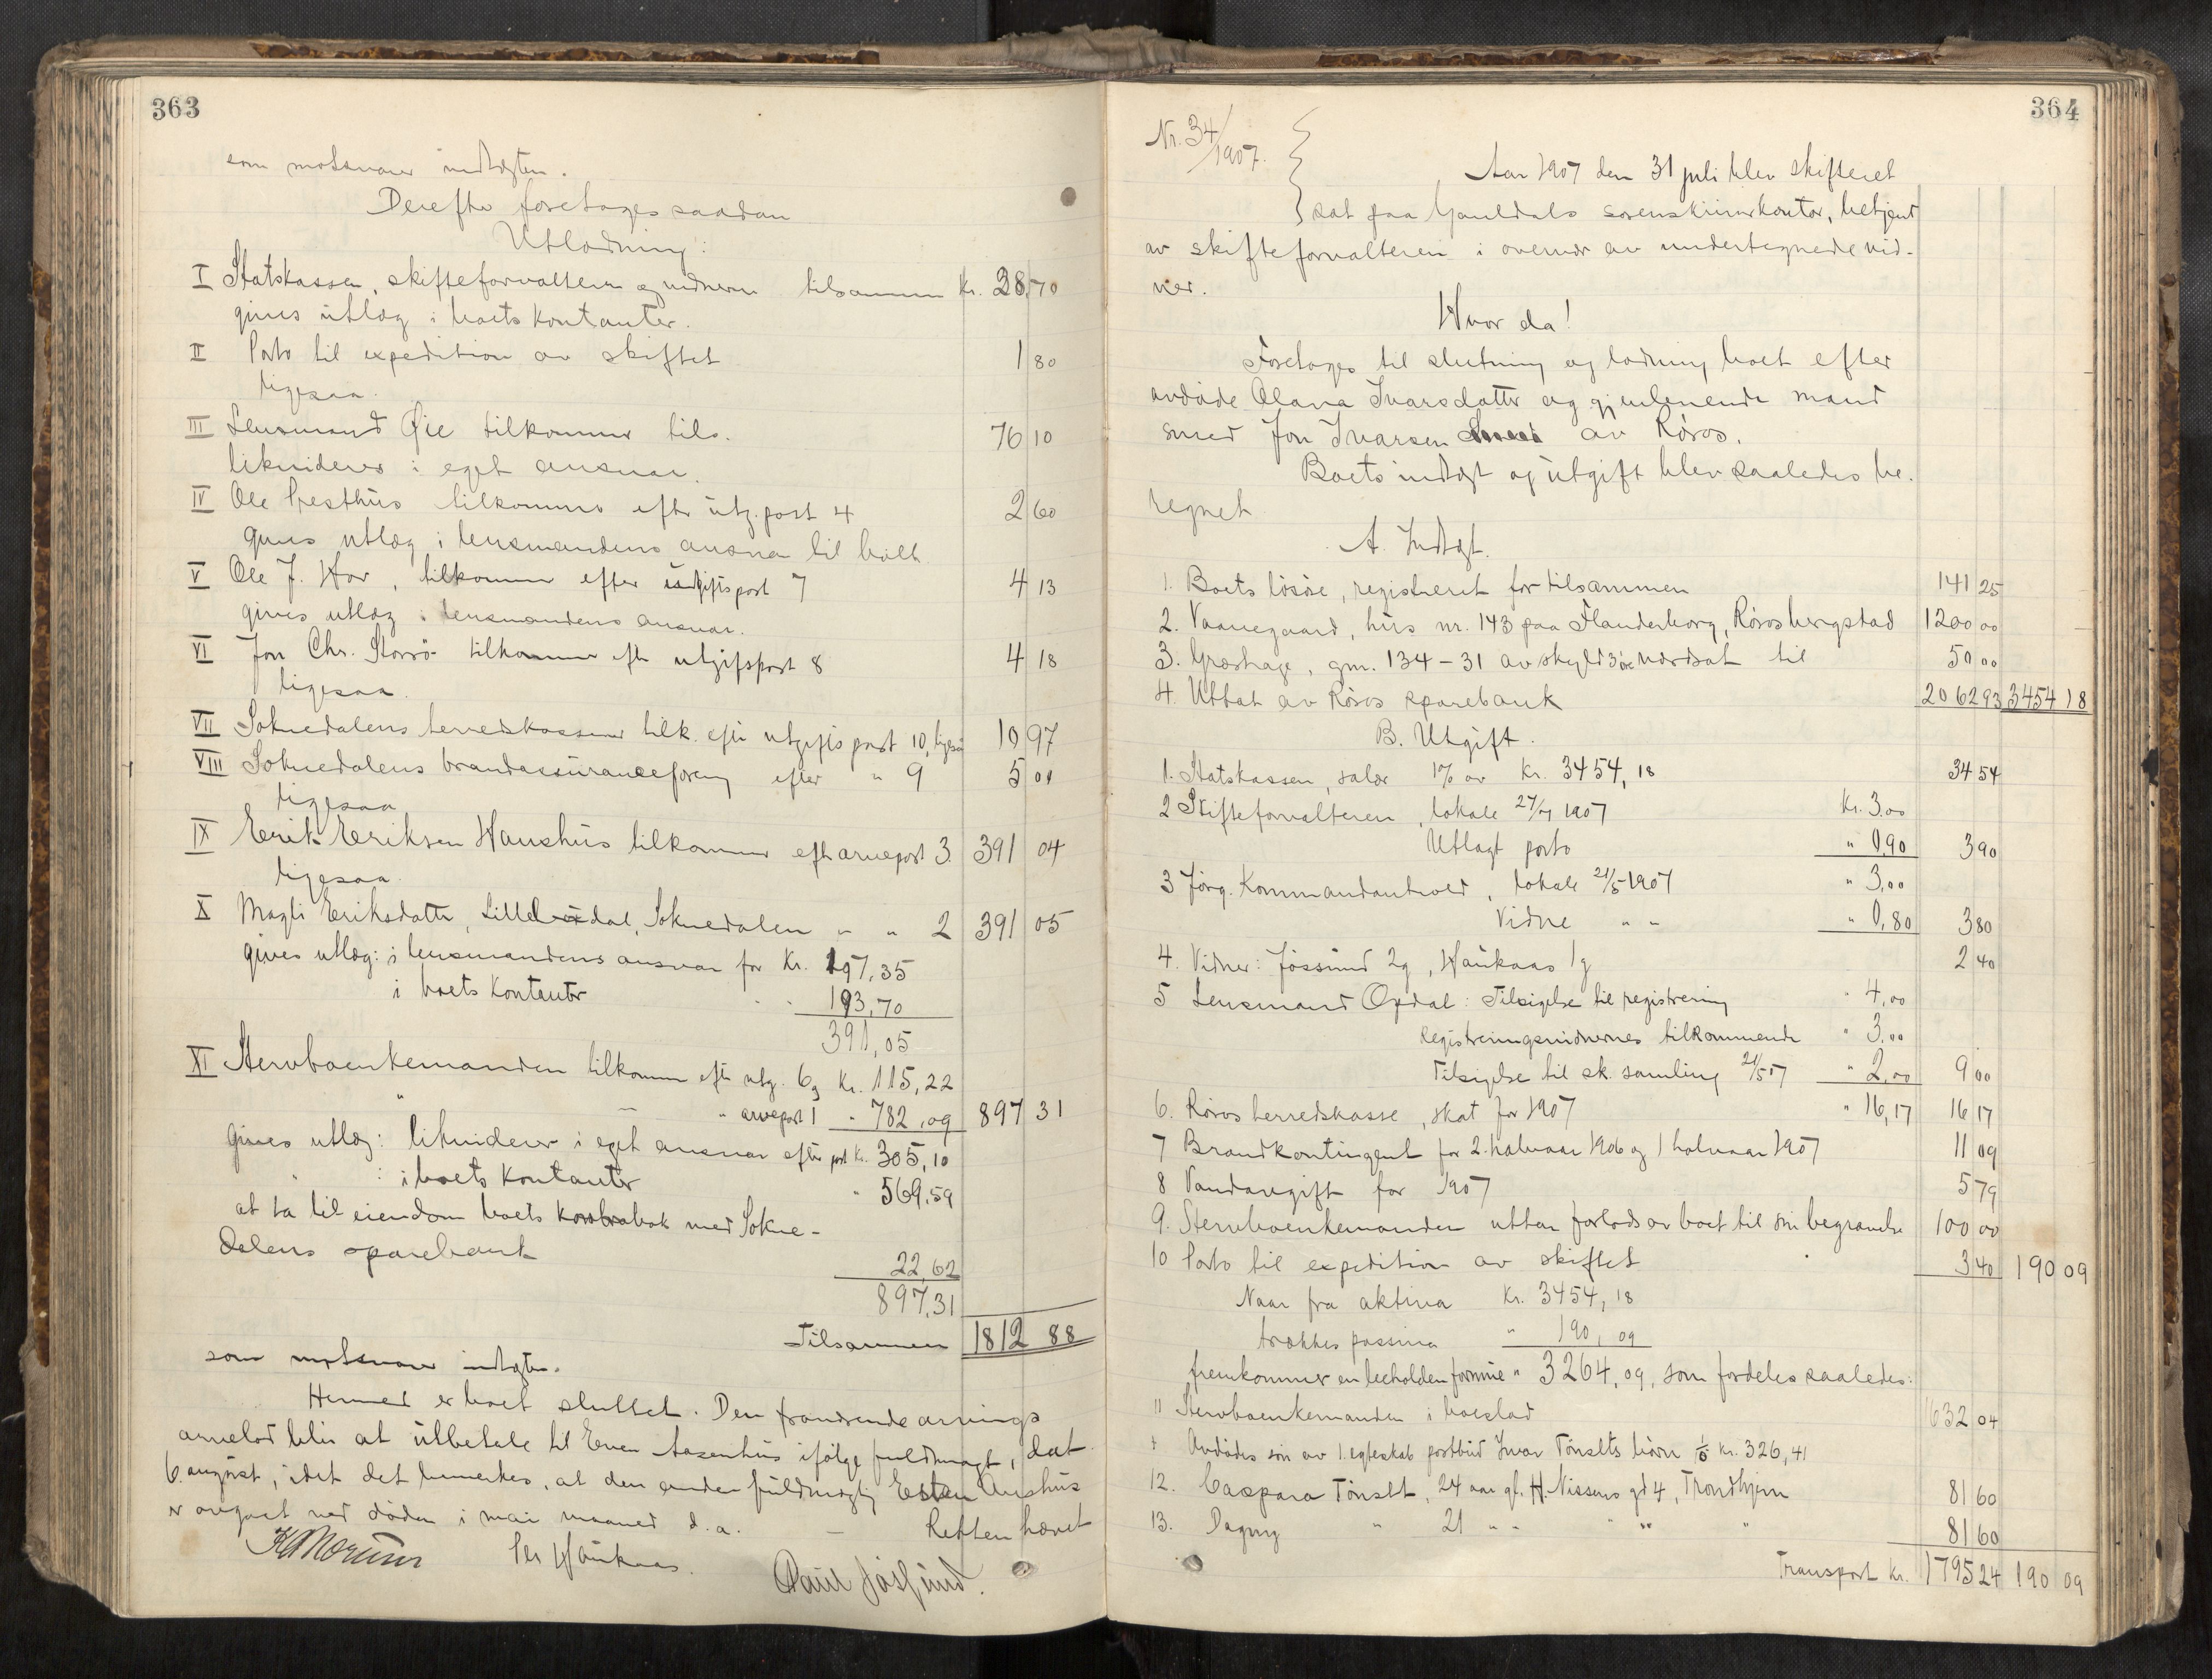 363
som motsvarer indtægten.
Derefter foretages saadan
Utlodning:
I Statskassen, skifteforvalteren og vidnerne tilsammen Kr. 38,70
gives utlæg i boets kontanter.
II Porto til expedition av skiftet 1 80
ligesaa.
III Lensmand Øie tilkommer tils. 76 10
likviderer i eget ansvar.
IV Ole Presthus tilkommer efter utg. post 4 2 60
gives utlæg i lensmandens ansvar til boet
V Ole J. Hov, tilkommer efter utgiftspost 7 4 13
gives utlæg i lensmandens ansvar.
VI Jon Chr. Storrö tilkommer efter utgiftspost 8 4 18
ligesaa.
VII Soknedalens herredskasserer tilk. efter utgiftspost 10, ligesaa 10 97
VIII Soknedalens brandassuranceforening efter " 9 5 01
ligesaa
IX Erik Eriksen Haushus tilkommer efter arvepost 3. 391 04
ligesaa.
X Magli Eriksdatter, Soknedalen " " 2 391 05
gives utlæg: i lensmandens ansvar for Kr. 197,35
i boets kontanter " " 193,70
391,05
XI Stervboenkemanden tilkommer efter utg. 6, Kr. 115,22
" — " arvepost 1 " 782,09 897 31
gives utlæg: likviderer i eget ansvar efter post Kr. 305,10
" : i boets kontanter " 569,59
at ta til eiendom boets kontrabok med Sokne-
dalens sparebank
22,62
897,31
Tilsammen 1812 88
som motsvarer indtægten.
Hermed er boet sluttet. Den fraværende arvings
arvelod blir at utbetale til Even Aasenhus ifölge fuldmagt, dat.
6. august, idet det bemerkes, at den anden fuldmægtig Esten Aushus
er avgaat ved döden i mai maaned d.a. — Retten hævet
Per Haukaas. Paul Jössund.
364
Nr. 34/1907.
Aar 1907 den 31 juli blev skifteret
sat paa Gauldals sorenskriverkontor, betjent
av skifteforvalteren i overvær av undertegnede vid-
ner.
Hvor da!
Foretages til slutning og lodning boet efter
avdöde Olava Ivarsdatter og gjenlevende mand
smed Jon Ivarsen av Röros.
Boets indtægt og utgift blev saaledes be-
regnet
A. Indtægt.
1. Boets lösöre, registreret for tilsammen 141 25
2. Vaanegaard, hus nr. 143 paa Flanderborg, Röros bergstad 1200 00
3. Græshage, gnr. 134-31 av skyld 3 öre værdsat til 50 00
4. Uttat av Röros sparebank 2062 93 3454 18
B. Utgift.
1. Statskassen, salær 1% av Kr. 3454,18 34 54
2 Skifteforvalteren, lokale 27/7 1907 Kr. 3.00
Utlagt porto " 0,90 3 90
3 Jörg. Kommandantvold, lokale 21/5 1907 " 3,00
Vidne " " " 0,80 3 80
4. Vidner: Jössund 2g, Haukaas 1g 2 40
5 Lensmand Opdal: Tilsigelse til registrering " 4,00
Registreringsvidnernes tilkommende " 3,00
Tilsigelse til sk. samling 21/5 07 " 2,00 9 00
6. Röros herredskasse, skat for 1907 " 16,17 16 17
7 Brandkontingent for 2. halvaar 1906 og 1 halvaar 1907 11 09
8 Vandavgift for 1907 5 79
9. Stervboenkemanden uttar forlods av boet til sin begravelse 100 00
10 Porto til expedition av skiftet 3 40 190 09
Naar fra aktiva Kr. 3454,18
trækkes passiva " 190,09
fremkommer en beholden formue " 3264,09, som fordeles saaledes:
11 Stervboenkemanden i boeslod 1632 04
Avdödes sön av 1. egteskab postbud Ivar Tönsets börn 1/5 kr. 326,41
12. Caspara Tönset, 24 aar gl. H. Nissens gd 4, Trondhjem 81 60
13. Dagny " 21 " " " " " 81 60
Transport Kr. 1795 24 190 09